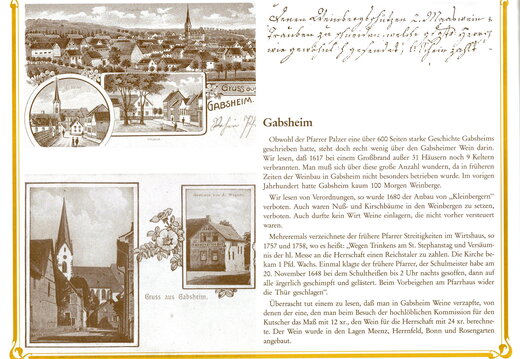 Gruss aus
GABSHEIM.
Gruss aus Gabsheim.
Gabsheim
Obwohl der Pfarrer Palzer eine über 600 Seiten starke Geschichte Gabsheims
geschrieben hatte, steht doch recht wenig über den Gabsheimer Wein darin.
Wir lesen, daß 1617 bei einem Großbrand außer 31 Häusern noch 9 Keltern
verbrannten. Man muß sich über diese Anzahl besonders wundern, da in früheren
Zeiten der Weinbau in Gabsheim nicht besonders betrieben wurde. Im vorigen
Jahrhundert hatte Gabsheim kaum 100 Morgen Weinberge.
Wir lesen von Verordnungen, so wurde 1680 der Anbau von „Kleinbergern"
verboten. Auch waren Nuß- und Kirschbäume in den Weinbergen zu setzen,
verboten. Auch durfte kein Wirt Weine einlagern, die nicht vorher versteuert
waren.
Mehreremals verzeichnete der frühere Pfarrer Streitigkeiten im Wirtshaus, so
1757 und 1758, wo es heiße: „Wegen Trinkens am St. Stephanstag und Versäum-
nis der hl. Messe an die Herrschaft einen Reichstaler zu zahlen. Die Kirche be-
kam 1 Pfd. Wachs. Einmal klagte der frühere Pfarrer, der Schulmeister habe am
20. November 1648 bei dem Schultheißen bis 2 Uhr nachts gesoffen, dann auf
alle ärgerlich geschimpft und gelästert. Beim Vorbeigehen am Pfarrhaus wider
die Thür geschlagen".
Überrascht tut einem zu lesen, daß man in Gabsheim Weine verzapfte, von
denen der eine, den man beim Besuch der hochlöblichen Kommission für den
Kutscher das Maß mit 12 xr., den Wein für die Herrschaft mit 24 xr. berechne-
te. Der Wein wurde in den Lagen Meenz, Herrnfeld, Bonn und Rosengarten
angebaut.